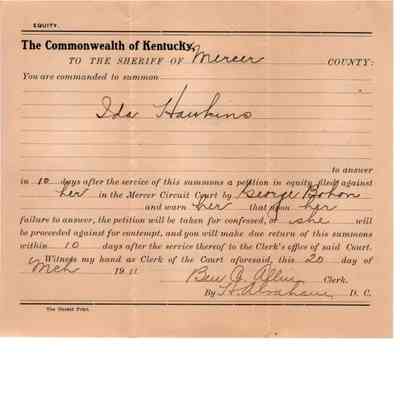 EQUITY.
The Commonwealth of Kentucky,
TO THE SHERIFF OF Mercer COUNTY:
You are commanded to summon
Ida Hawkins
to answer
in 10 days after the service of this summons a petition in equity filed against
her in the Mercer Circuit Court by George Bohon
and warn her that upon her
failure to answer, the petition will be taken for confessed, or she will
be proceeded against for contempt, and you will make due return of this summons
within 10 days after the service thereof to the Clerk's office of said Court.
Witness my hand as Clerk of the Court aforesaid, this 20 day of
Mch 1911
Ben C. Allin Clerk.
By Abraham, D. C.
The Herald Print.